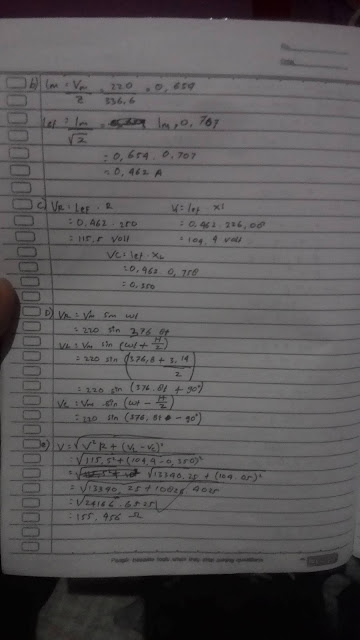 No.
Date.
b) Im = Vm/Z = 220/336,6 = 0,654
Ief = Im/√2 = Im . 0,707
= 0,654 . 0,707
= 0,462 A
c) VR = Ief . R
= 0,462 . 250
= 115,5 Volt
Vl = Ief Xl
= 0,462 . 226,08
= 104,4 Volt
VC = Ief . XL
= 0,462 0,758
= 0,350
D) VR = Vm Sin wt
= 220 sin 376,8t
VL = Vm sin (wt + π/2)
= 220 sin (376,8 + 3,14/2)
= 220 sin (376,8t + 90°)
Vc = Vm sin (wt - π/2)
= 220 sin (376,8t - 90°)
e) V = √V²R + (VL - Vc)²
= √115,5² + (104,4 - 0,350)²
= √13340,25 + (104,05)²
= √13340,25 + 10826,4025
= √24166,6525
= 155,456 Ω